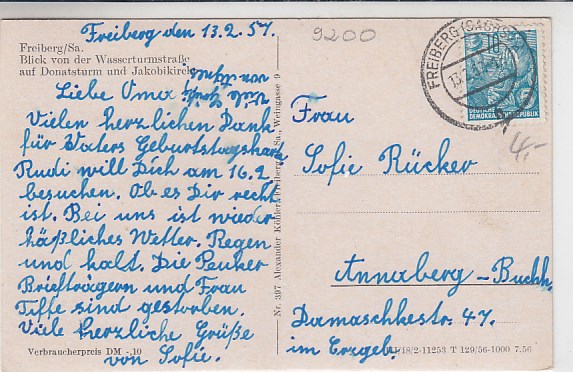 Freiberg den 13.2.57.
9200
Freiberg/Sa.
Blick von der Wasserturmstraße
auf Donatsturm und Jakobikirche
Liebe Oma
Vielen herzlichen Dank
für Vaters Geburtstagskarte
Rudi will Dich am 16.2.
besuchen. Ob es Dir recht
ist. Bei uns ist wieder
häßliches Wetter. Regen
und kalt. Die Peuker
Briefträgern und Frau
Tiffe sind gestorben.
Viele herzliche Grüße
von Sofie.
Verbraucherpreis DM -,10
Nr. 397 Alexander Köhler, Freiberg/Sa., Weingasse 9
FREIBERG (SACHS)
DEUTSCHE
DEMOKRATISCHE REPUBLIK
4,-
Frau
Sofie Rücker
Annaberg-Buchh.
Damaschkestr. 47.
im Erzgeb.
/18/2-11253 T 129/56-1000 7.56